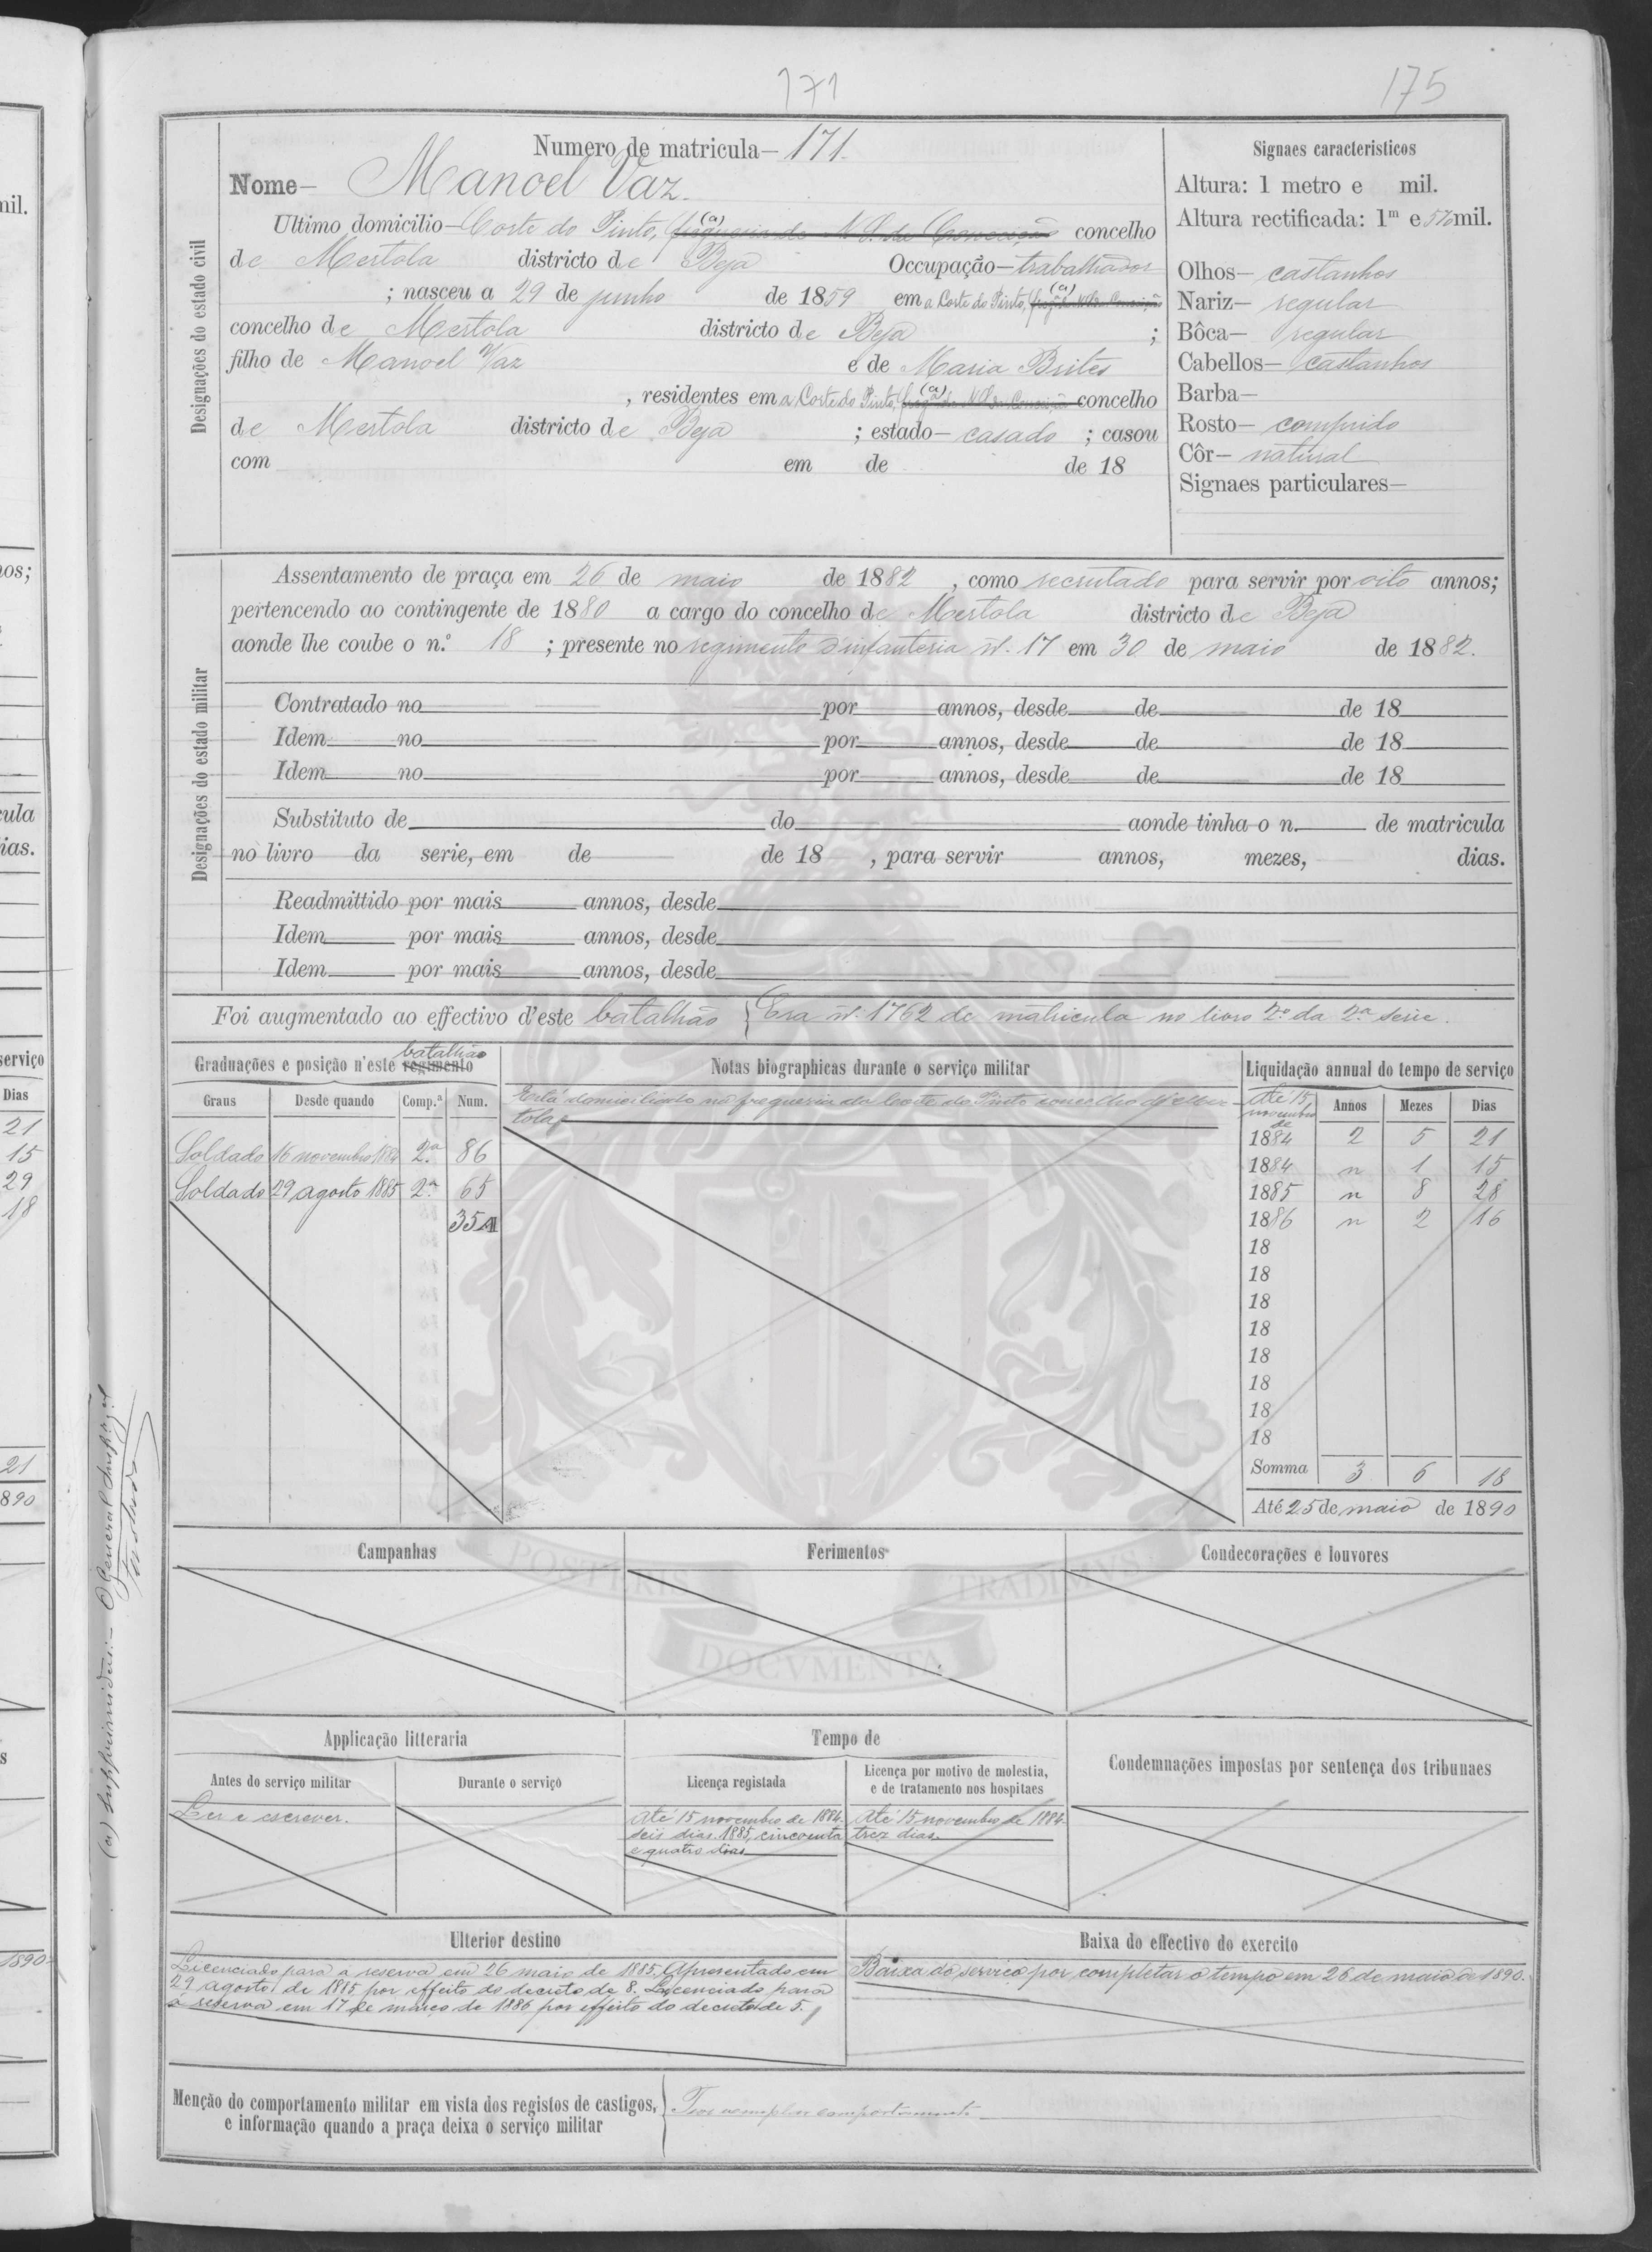 171
175
Numero de matricula—171.
Nome— Manoel Vaz.
Ultimo domicilio—Corte do Pinto, (a) freguesia de N. S. da Conceição concelho
de Mertola districto de Beja Occupação—trabalhador
; nasceu a 29 de junho de 1859 em a Corte do Pinto, (a) freg.ª de N. S.ª da Conceição
concelho de Mertola districto de Beja ;
filho de Manoel Vaz e de Maria Brites
, residentes em a Corte do Pinto, (a) freg.ª de N. S.ª da Conceição concelho
de Mertola districto de Beja ; estado—casado ; casou
com em de de 18
Designações do estado civil
Signaes caracteristicos
Altura: 1 metro e mil.
Altura rectificada: 1m e 570 mil.
Olhos—castanhos
Nariz—regular
Bôca—regular
Cabellos—castanhos
Barba—
Rosto—comprido
Côr—natural
Signaes particulares—
Designações do estado militar
Assentamento de praça em 26 de maio de 1882, como recrutado para servir por oito annos;
pertencendo ao contingente de 1880 a cargo do concelho de Mertola districto de Beja
aonde lhe coube o n.º 18 ; presente no regimento d'infanteria n.º 17 em 30 de maio de 1882.
Contratado no por annos, desde de de 18
Idem no por annos, desde de de 18
Idem no por annos, desde de de 18
Substituto de do aonde tinha o n. de matricula
no livro da serie, em de de 18 , para servir annos, mezes, dias.
Readmittido por mais annos, desde
Idem por mais annos, desde
Idem por mais annos, desde
Foi augmentado ao effectivo d'este batalhão { Era n.º 1762 de matricula no livro 2.º da 2.ª serie.
Graduações e posição n'este regimento batalhão
Graus Desde quando Comp.ª Num.
Soldado 16 novembro 1884 2.ª 86
Soldado 29 agosto 1885 2.ª 65
35 A
Notas biographicas durante o serviço militar
Está domiciliado na freguesia da Corte do Pinto concelho de Mer-
tola
Liquidação annual do tempo de serviço
Até 15 novembro de Annos Mezes Dias
1884 2 5 21
1884 " 1 15
1885 " 8 28
1886 " 2 16
18
18
18
18
18
18
18
18
Somma 3 6 18
Até 25 de maio de 1890
Campanhas
Ferimentos
Condecorações e louvores
POSTERIS TRADIMVS DOCVMENTA
Applicação litteraria
Antes do serviço militar
Durante o serviço
Ler e escrever.
Tempo de
Licença registada
Licença por motivo de molestia,
e de tratamento nos hospitaes
Até 15 novembro de 1884.
seis dias. 1885, cincoenta
e quatro dias
Até 15 novembro de 1884.
trez dias.
Condemnações impostas por sentença dos tribunaes
Ulterior destino
Licenciado para a reserva em 26 maio de 1885. Apresentado em
29 agosto de 1885 por effeito do decreto de 8. Licenciado para
a reserva em 17 de março de 1886 por effeito do decreto de 5.
Baixa do effectivo do exercito
Baixa do serviço por completar o tempo em 26 de maio de 1890.
Menção do comportamento militar em vista dos registos de castigos,
e informação quando a praça deixa o serviço militar
Teve exemplar comportamento
(a) Supprimidas:— O General
nil.
nos;
cula
ias.
serviço
Dias
21
15
29
18
21
890
s
1890